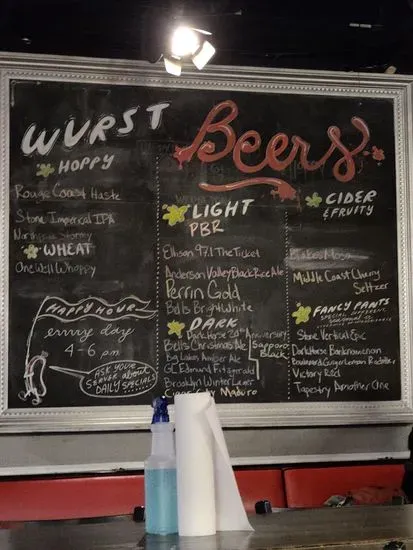 WURST
Beers
HOPPY
Rouge Coast Haste
Stone Imperical IPA
Stormy
WHEAT
One Well Whoppy
HAPPY HOUR
errrry day
4-6 pm
ASK YOUR
SERVER about
DAILY SPECIALS
LIGHT
PBR
Ellison 97.1 The Ticket
Anderson Valley Black Rice Ale
Perrin Gold
Bells Bright White
DARK
Dark Horse 20th Anniversary
Bells Christmas Ale
Big Lake Amber Ale
GC Edmund Fitzgerald
Brooklyn Winter Lager
Cigar City Maduro
Sapporo
Black
CIDER
& FRUITY
Blakes Mosa
Middle Coast Cherry
Seltzer
FANCY PANTS
SPECIAL, DIFFERENT,
Stone Vertical Epic
Dark Horse
Ginger Lemon Radler
Victory Red
Tapestry Another One